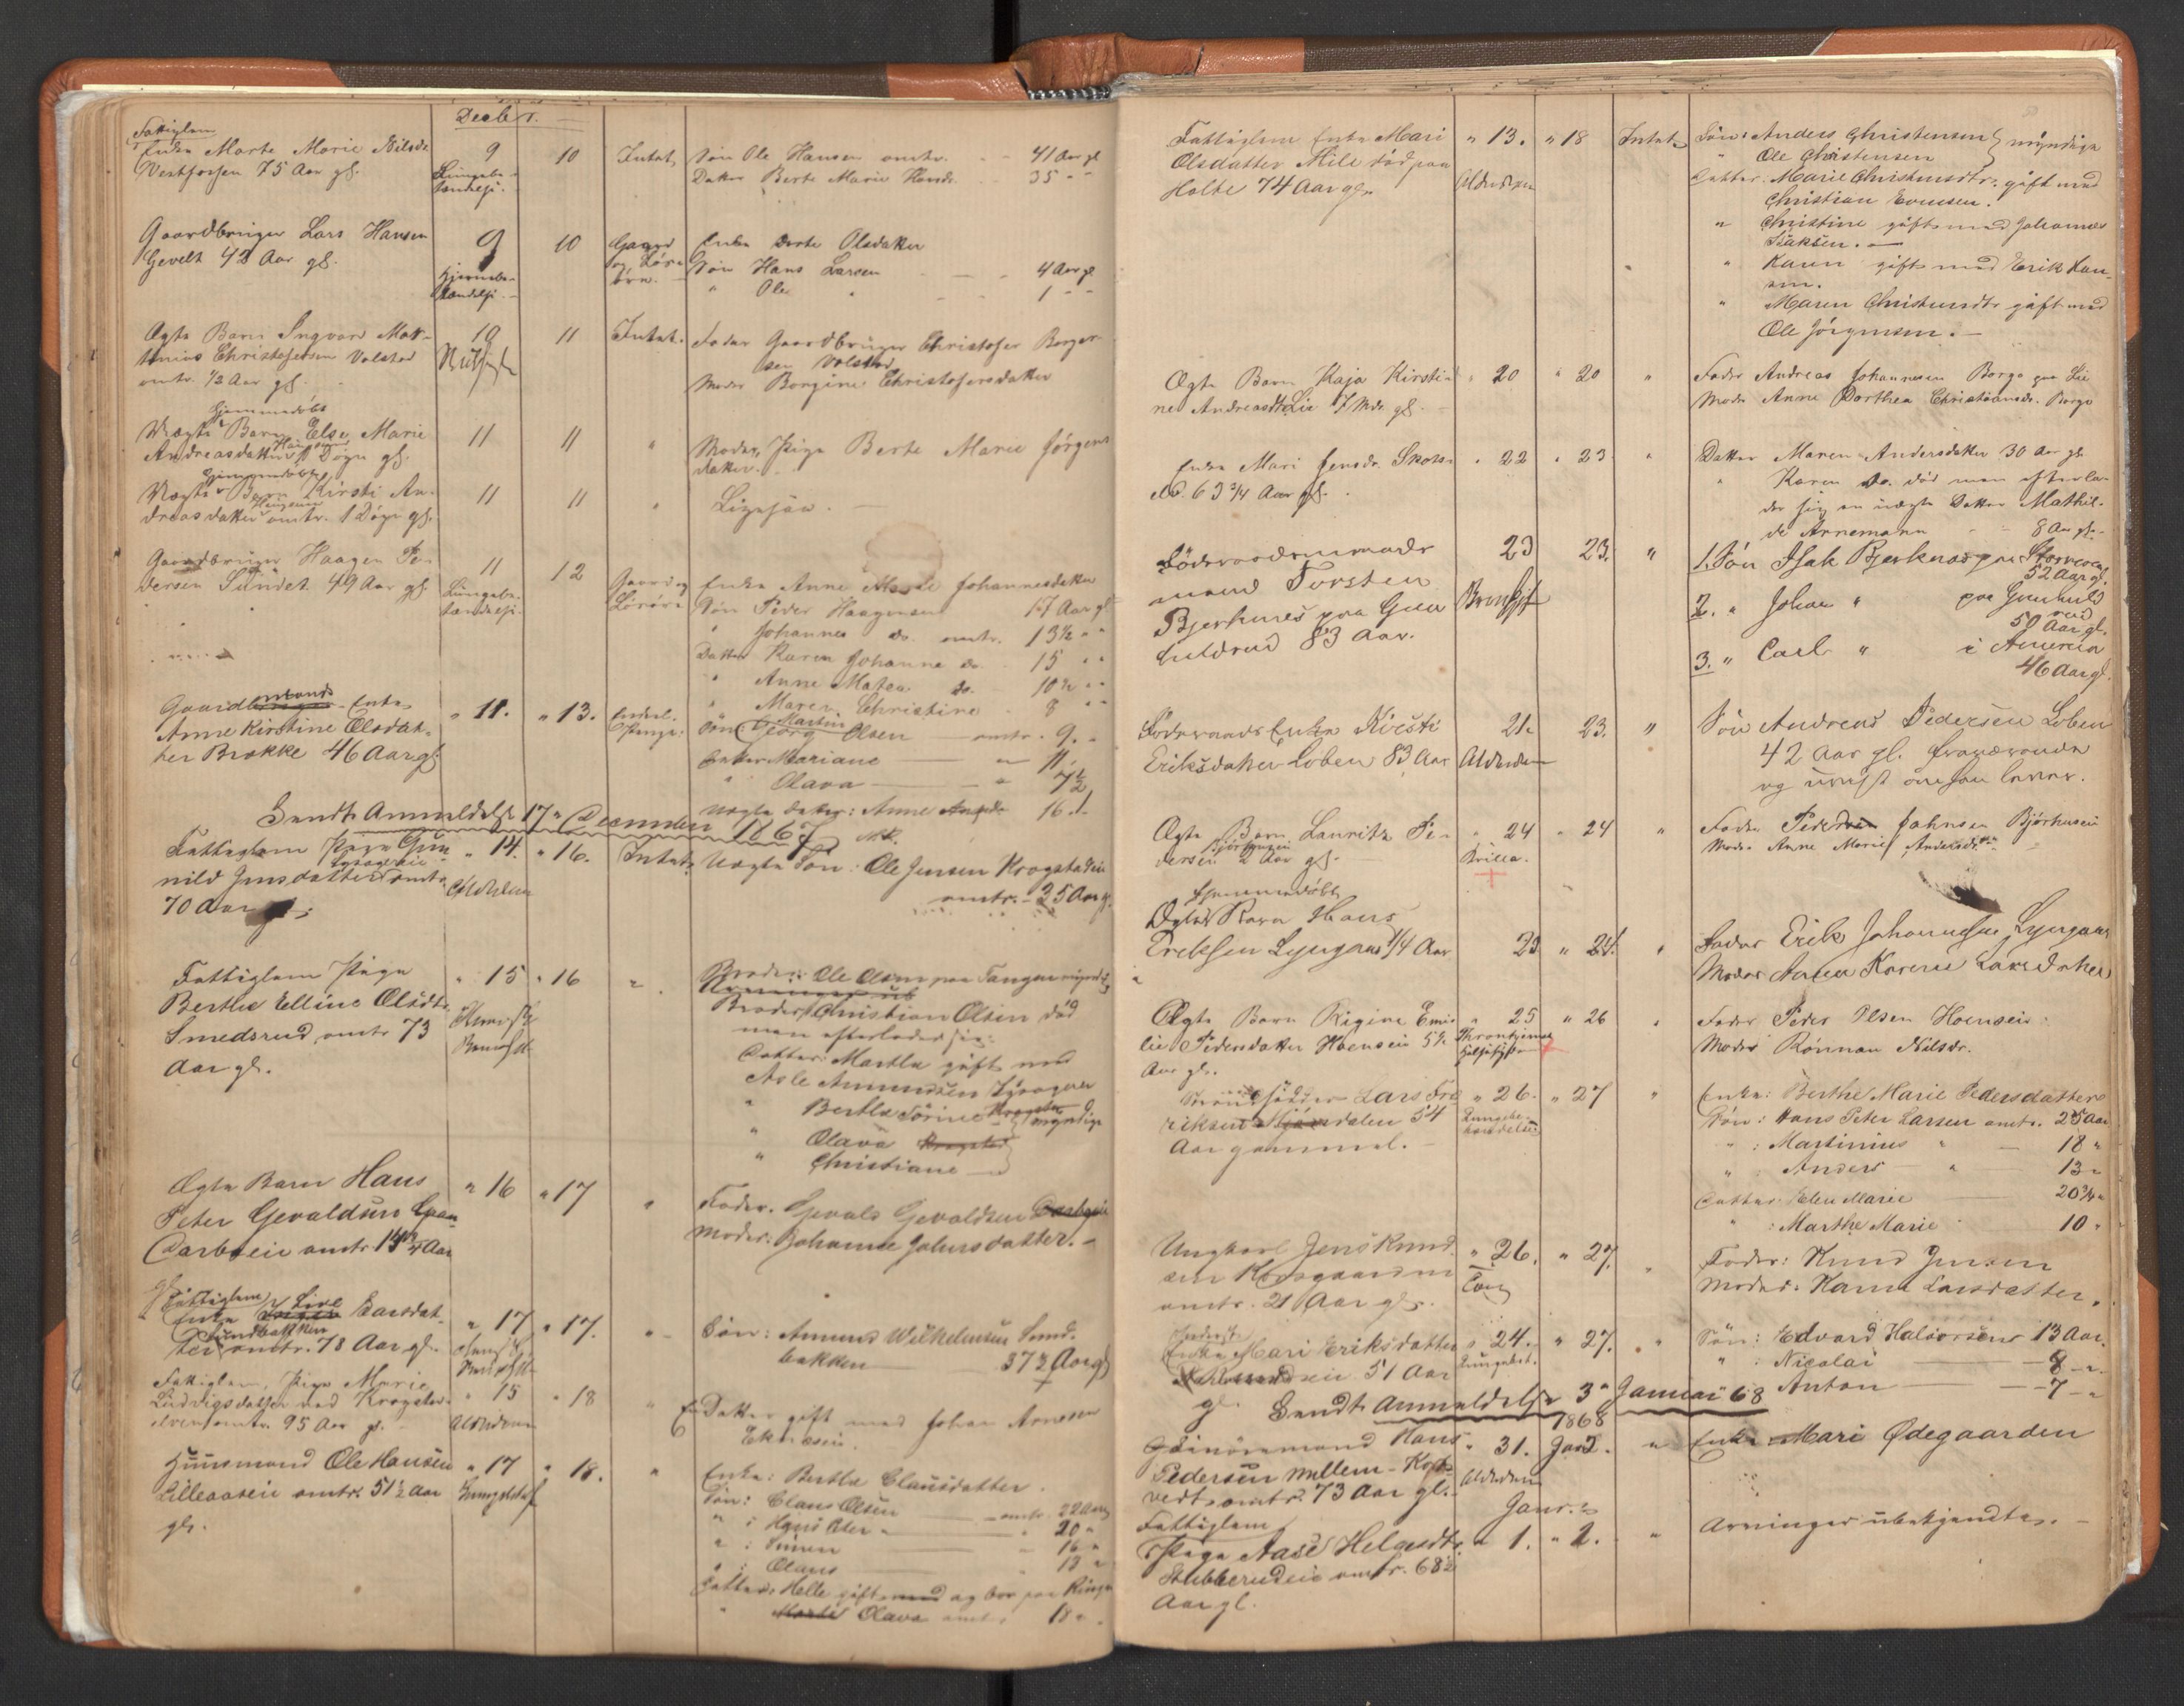 Decbr.
Fattiglem
Enke Marte Marie Nilsdr
Vestfossen 75 Aar gl.
9
Lungebe-
tændelse.
10
Intet
Søn Ole Hansen omtr. 41 Aar gl
Datter Berte Marie Hansdr. 35 " "
Gaardbruger Lars Hansen
Gevelt 42 Aar gl.
9
Hjernebe-
tændelse.
10
Gaard
og Løs-
øre.
Enke Dorte Olsdatter
Søn Hans Larsen 4 Aar gl
" Ole " 1 " "
Ægte Barn Ingvard Mar-
tinius Christofersen Volstad
omtr. 1/2 Aar gl.
10
11
Intet.
Fader Gaardbruger Christofer Borger-
sen Volstad
Moder Borgine Christofersdatter
Hjemmedøbt
Uægte Barn Else Marie
Andreasdatter 1 Døgn gl.
11
11
"
Moder, Pige Berte Marie Jørgens-
datter.
Hjemmedøbt
Uægte Barn Kirsti An-
dreasdatter omtr. 1 Døgn gl.
11
11
"
Ligesaa.
Gaardbruger Haagen Pe-
dersen Sundet 49 Aar gl.
11
Lungebe-
tændelse.
12
Gaard og
Løsøre
Enke Anne Marie Johannesdatter
Søn Peder Haagensen 17 Aar gl
" Johannes do. omtr. 13½ " "
Datter Karen Johanne do. 15 " "
" Anne Matea do. 10½ " "
" Maren Christine 8 " "
Gaardmands Enke
Anne Kirstine Olsdat-
ter Brække 46 Aar gl.
" 11.
" 13.
Søn Georg Martin Olsen omtr. 9. "
Datter Mariane " 11.
" Olava " 7½
Uægte Datter: Anne 16.
Sendt Anmeldelse 17 December 1867
Fattiglem Pige Gun-
nild Jensdatter omtr.
70 Aar gl.
" 14.
Alderdom
" 16.
Intet
Uægte Søn: Ole Jensen Krogstadeie
omtr. 25 Aar gl.
Fattiglem Pige
Berthe Elline Olsdtr.
Smedsrud, omtr 73
Aar gl.
" 15
" 16
"
Broder: Ole Olsen paa Tangen myndig
Broder Christian Olsen død
men efterlader sig:
Datter: Marthe gift med
Asle Amundsen
" Berthe Sørine
" Olava
" Christiane
myndige
Ægte Barn Hans
Peter Gevaldsen
omtr 14 Aar
gl.
" 16
" 17
"
Fader. Gevald Gevaldsen
Moder: Johanne Johnsdatter.
Fattiglem
Enke Live Larsdat-
ter Sundbakken omtr. 78 Aar gl.
" 17
" 17.
"
Søn: Amund Wilhelmsen Sund-
bakken 37½ Aar gl
Fattiglem, Pige Marie
Ludvigsdatter ved Krogstad-
elven omtr. 95 Aar gl.
" 15
Alderdom
" 18
"
En Datter gift med Johan Arnesen
Ekneseie.
Huusmand Ole Hansen
Lilleaaseie omtr. 51½ Aar
gl.
" 17
" 18.
"
Enke: Berthe Clausdatter.
Søn: Claus Olsen omtr. 22 Aar
" : Hans Peter " 20 "
" : Simen 16 "
" : Olaus 13 "
Datter: Helle gift og bor paa Ringe
" Olava omtr. 18 "
Fattiglem Enke Mari
Olsdatter Mile død paa
Holte 74 Aar gl.
" 13.
Alderdom
" 18
Intet
Søn: Anders Christensen
" Ole Christensen
myndige
Datter Marie Christensdtr. gift med
Christian Evensen.
" Christine gift med Johannes
Isaksen.
" Karen gift med Erik Han-
sen.
" Maren Christensdtr gift med
Ole Jörgensen.
Ægte Barn Kaja Kirsti-
ne Andreasdtr Lie 7 Mdr. gl.
" 20
" 20
"
Fader Andreas Johannesen Borge paa Lie
Moder Anne Dorthea Christiansdr. Borge
Enke Mari Jensdr. Skots-
63 3/4 Aar gl.
" 22
" 23
"
Datter Maren Andersdatter 30 Aar gl.
" Karen do. død men efterla-
der sig en uægte Datter Mathil-
de Arnemann 8 Aar gl.
Föderaadsmand
Torsten
Bjerknes paa Gun
huldrud 83 Aar.
23
23.
"
1. Søn Isak Bjerknes paa
52 Aar gl.
2. " Johan " paa Gunhuld
rud
50 Aar gl.
3. " Carl " i America
46 Aar gl.
Föderaads Enke Kirsti
Eriksdatter Loben 83 Aar
21.
Alderdom
23.
"
Søn Andreas Pedersen Loben
42 Aar gl. fraværende
og uvist om han lever.
Ægte Barn Lauritz Pe-
dersen 2 Aar gl.
" 24
" 24
"
Fader Peder Johnsen Björhuseie
Moder Anne Marie Andersdr.
Hjemmedøbt
Ægte Barn Hans
Eriksen Lyngaas 1/4 Aar
23
" 24.
"
Fader Erik Johannesen Lyngaas
Moder Anne Karine Larsdatter
Ægte Barn Rigine Emi-
lie Pedersdatter Hoenseie 5½
Aar gl.
" 25
" 26
"
Fader Peder Olsen Hoenseie
Moder Rönnau Nilsdr.
Strandsidder Lars Fre
riksen Mjøndalen 54
Aar gammel.
" 26.
Lungebe-
tændelse
" 27
"
Enke: Berthe Marie Pedersdatter
Søn: Hans Peter Larsen omtr. 25 Aar
" : Martinius " 18 "
" : Anders " 13 "
Datter: Elen Marie 20 3/4 "
" : Marthe Marie 10 "
Ungkarl Jens Knud-
sen Korsgaarden
omtr. 21 Aar gl.
" 26.
" 27.
"
Fader: Knud Jensen
Moder: Karen Larsdatter.
Enke Mari Eriksdatter
51 Aar
gl.
" 24.
" 27.
"
Søn: Edvard Halvorsen 13 Aar.
" : Nicolai 8 "
Anton 7 "
Sendt Anmeldelse 3 Januar 68
1868
Hans
Pedersen Mellem-Kop-
vedt omtr. 73 Aar gl.
" 31.
Alderdom
Jan 2.
"
Enke Mari Ødegaarden
Janr.
Fattiglem
Pige Aase Helgesdtr.
Stubberudeie omtr. 68½
Aar gl.
" 1.
" 2.
"
Arvinger ubekjendte.